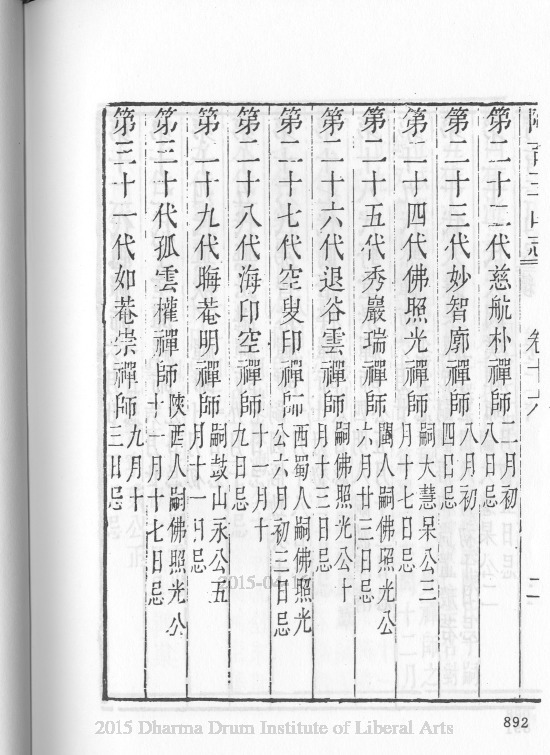 卷十六
二
第二十二代慈航朴禪師二月初八日忌
第二十三代妙智廓禪師八月初四日忌
第二十四代佛照光禪師嗣大慧杲公三月十七日忌
第二十五代秀巖瑞禪師閩人嗣佛照光公六月廿三日忌
第二十六代退谷雲禪師嗣佛照光公十月十三日忌
第二十七代空叟印禪師西蜀人嗣佛照光公六月初三日忌
第二十八代海印空禪師十一月十九日忌
第二十九代晦菴明禪師嗣鼓山永公五月十一日忌
第三十代孤雲權禪師陝西人嗣佛照光公十一月十七日忌
第三十一代如菴崇禪師九月十三日忌
892
2015 Dharma Drum Institute of Liberal Arts